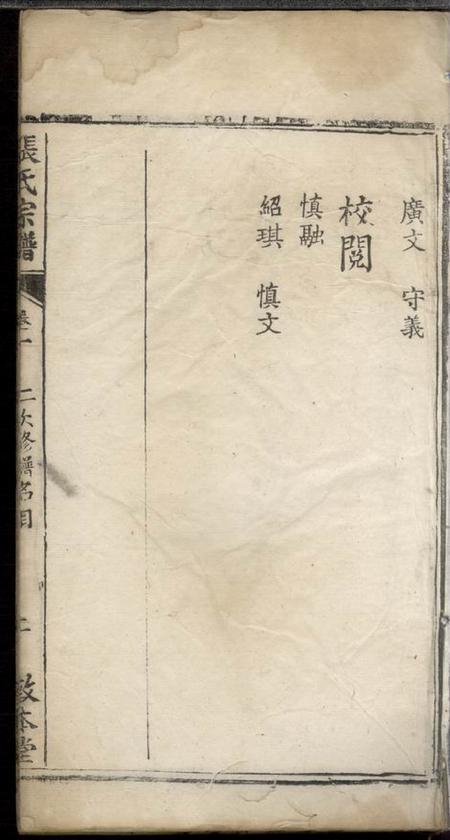 廣文 守義
校閱
慎融
紹琪 慎文
張氏宗譜 卷一 二次修譜名目 二 敦本堂